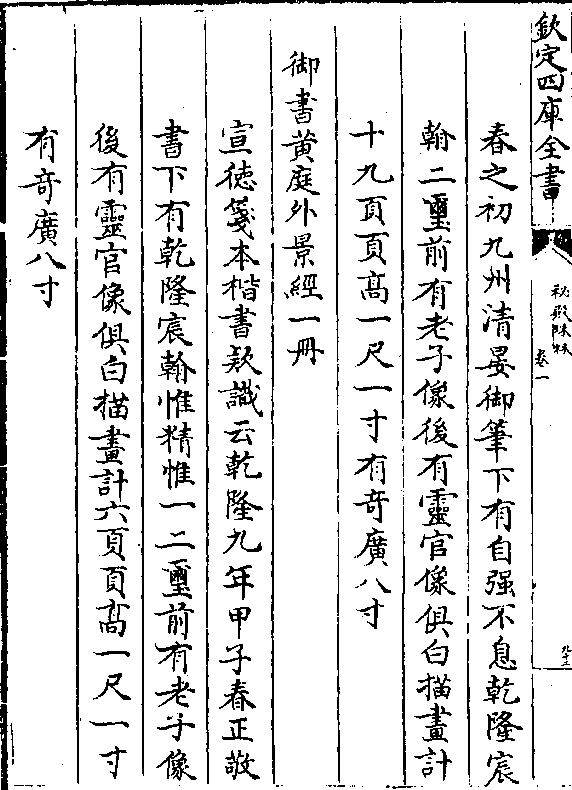 欽定四庫全書
秘殿珠林
卷一
春之初九州清晏御筆下有自强不息乾隆宸
翰二璽前有老子像後有靈官像俱白描畫計
十九頁頁高一尺一寸有奇廣八寸
御書黃庭外景經一冊
宣德箋本楷書款識云乾隆九年甲子春正敬
書下有乾隆宸翰惟精惟一二璽前有老子像
後有靈官像俱白描畫計六頁頁高一尺一寸
有奇廣八寸